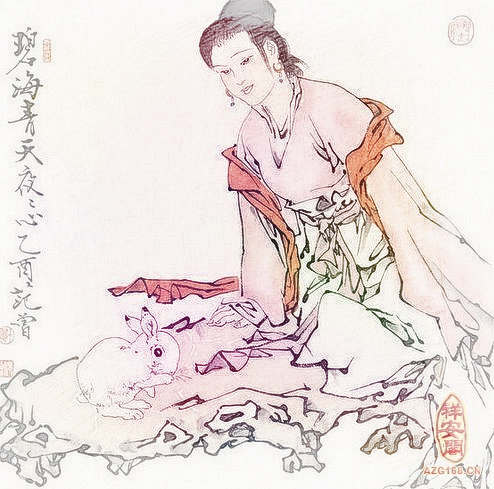 碧海青天夜夜心乙酉范曾
祥安閣
AZG168.CN